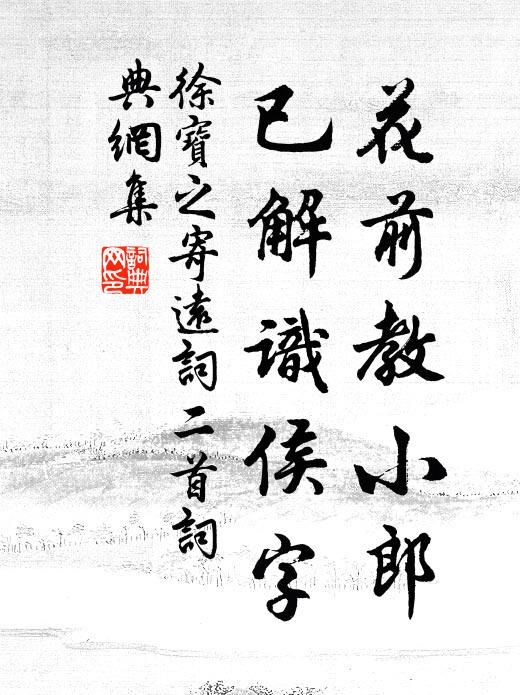 花前教小郎
已解識侯字
徐寶之寄遠詞二首詞
典網集
詞典網印